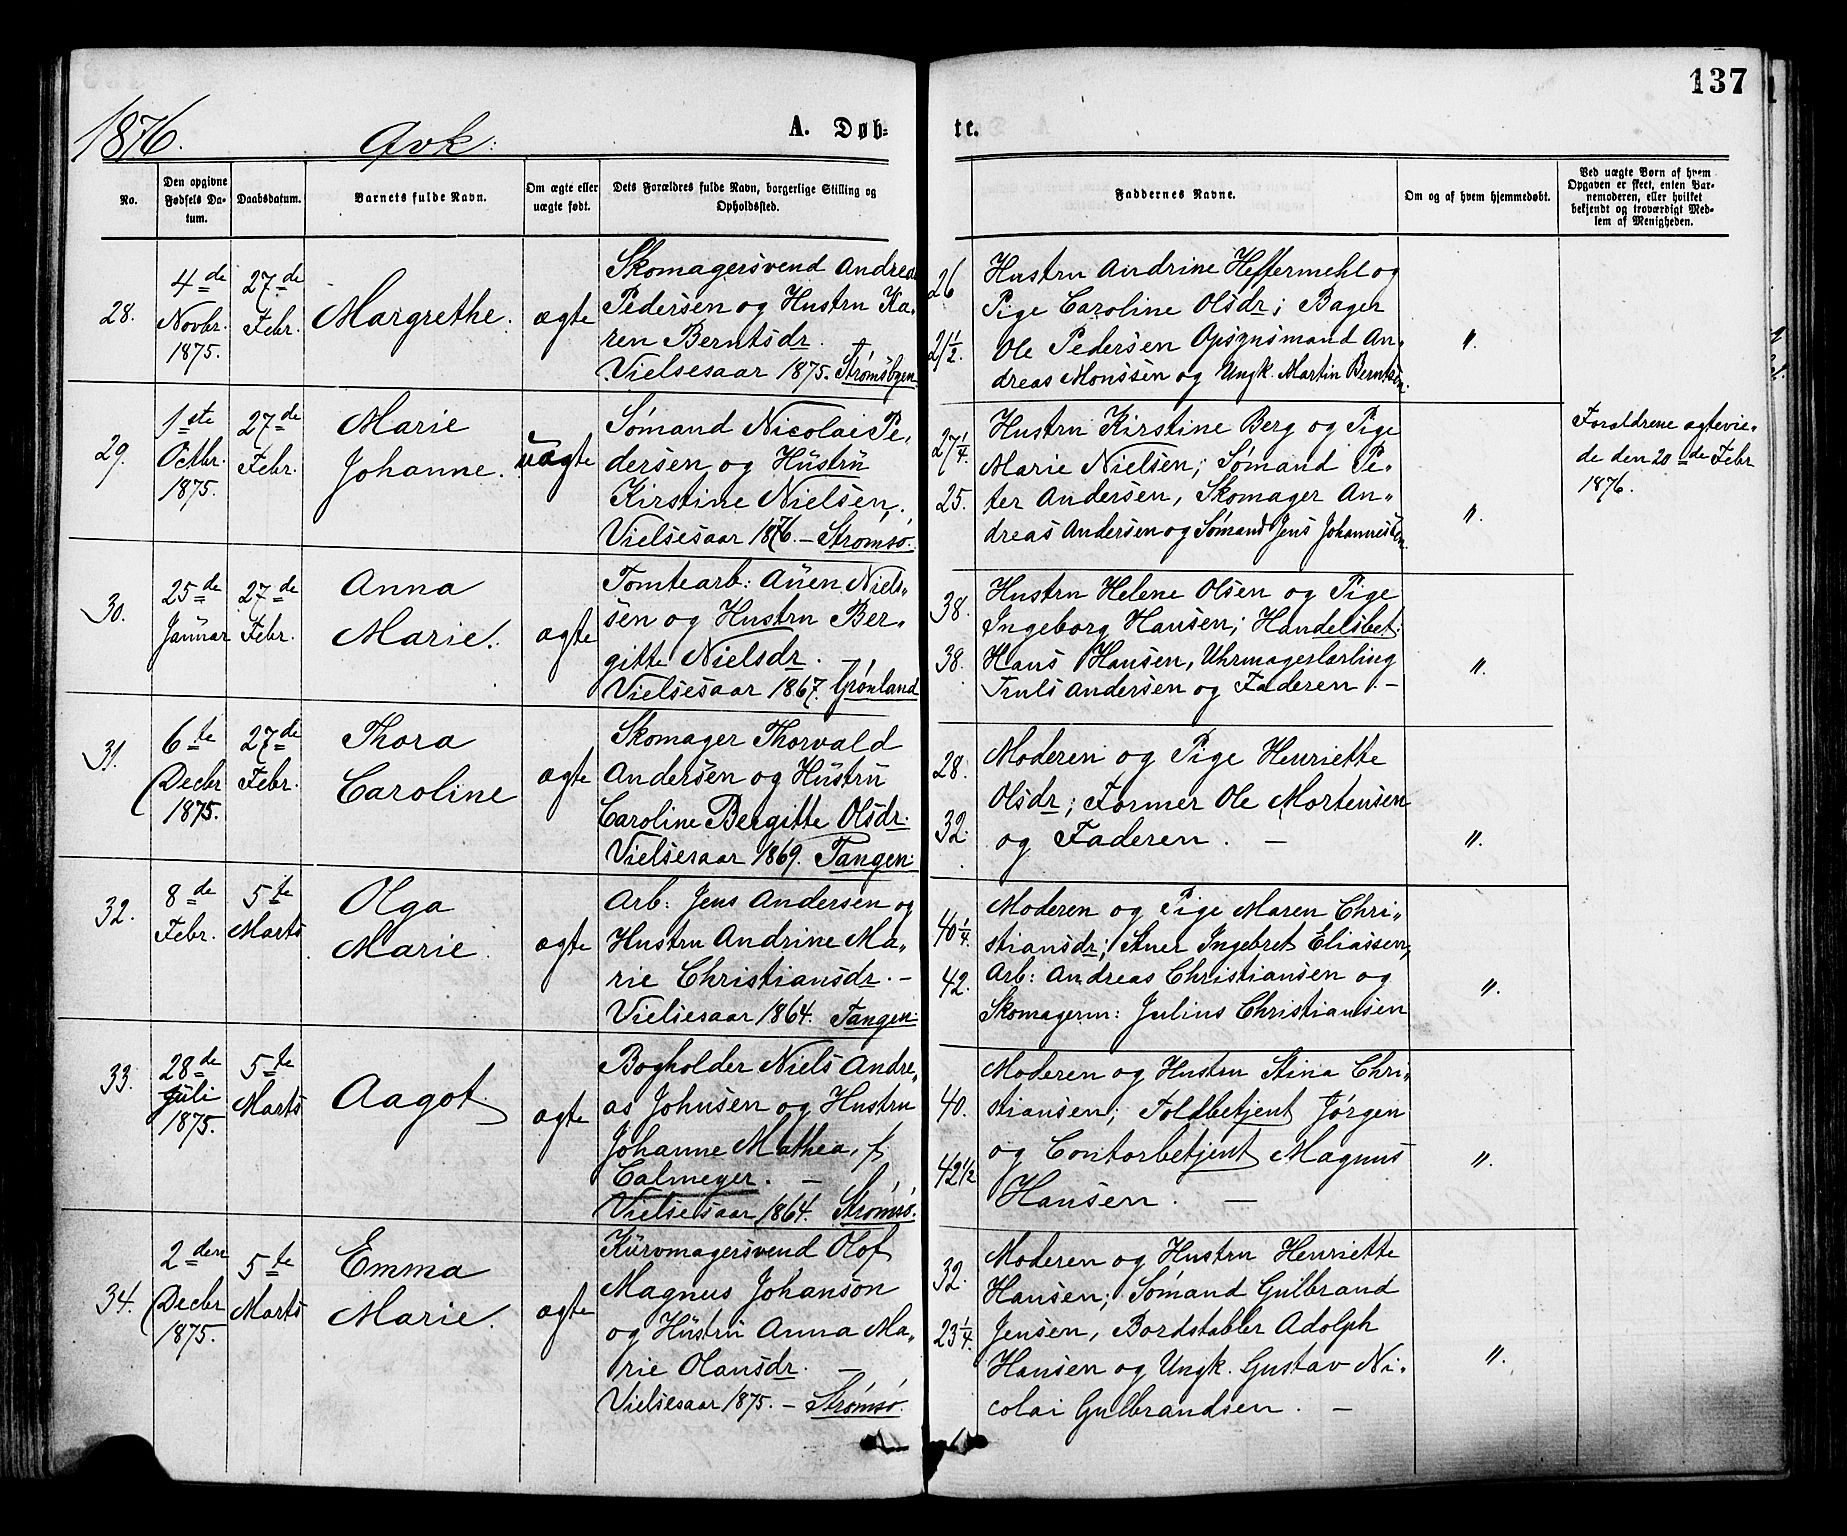 137
1876. Qvk: A. Døb- te.
No.
Den opgivne Fødsels Datum.
Daabsdatum.
Barnets fulde Navn.
Om ægte eller uægte født.
Dets Forældres fulde Navn, borgerlige Stilling og Opholdssted.
Faddernes Navne.
Om og af hvem hjemmedøbt.
Ved uægte Børn af hvem
Opgaven er skeet, enten Bar-
nemoderen, eller hvilket
bekjendt og troværdigt Med-
lem af Menigheden.
28.
4de
Novbr.
1875.
27de
Febr.
Margrethe.
ægte
Skomagersvend Andreas
Pedersen og Hustru Ka-
ren Berntsdr.
Vielsesaar 1875. Strømsbgen
26
21 1/2.
Hustru Andrine Heffermehl og
Pige Caroline Olsdr; Bager
Ole Pedersen Opsynsmand An-
dreas Monssen og Ungk. Martin Berntsen.
"
29.
1ste
Octbr.
1875.
27de
Febr.
Marie
Johanne.
uægte
Sømand Nicolai Pe-
dersen og Hustru
Kirstine Nielsen,
Vielsesaar 1876. – Strømsø.
27 1/4
25.
Hustru Kirstine Berg og Pige
Marie Nielsen; Sømand Pe-
ter Andersen, Skomager An-
dreas Andersen og Sømand Jens Johannessen.
"
Forældrene ægtevie-
de den 20de Febr
1876.
30.
25de
Januar
27de
Febr.
Anna
Marie.
ægte
Tomtearb: Auen Niel-
sen og Hustru Ber-
gitte Nielsdr. –
Vielsesaar 1867. Grønland
38.
38.
Hustru Helene Olsen og Pige
Ingeborg Hansen; Handelsbet:
Hans Hansen, Uhrmagerlærling
Truls Andersen og Faderen. –
"
31.
6te
Decbr
1875.
27de
Febr.
Thora
Caroline
ægte
Skomager Thorvald
Andersen og Hustru
Caroline Bergitte Olsdr.
Vielsesaar 1869. Tangen.
28.
32.
Moderen og Pige Henriette
Olsdr; Former Ole Mortensen
og Faderen. –
"
32.
8de
Febr.
5te
Marts
Olga
Marie.
ægte
Arb: Jens Andersen og
Hustru Andrine Ma-
rie Christiansdr. –
Vielsesaar 1864. Tangen.
40 1/4.
42.
Moderen og Pige Maren Chri-
stiansdr; Stuer Ingebret Eliassen,
Arb: Andreas Christiansen og
Skomagerm: Julius Christiansen
"
33.
28de
Juli
1875.
5te
Marts
Aagot.
ægte
Bogholder Niels Andre-
as Johnsen og Hustru
Johanne Mathea, f.
Calmeyer. –
Vielsesaar 1864. Strømsø.
40.
42 1/2
Moderen og Hustru Stina Chri-
stiansen; Toldbetjent Jørgen
og Contorbetjent Magnus
Hansen. –
"
34.
2den
Decbr
1875.
5te
Marts
Emma
Marie.
ægte
Kurvmagersvend Olof
Magnus Johanson
og Hustru Anna Ma-
rie Olansdr. –
Vielsesaar 1875. – Strømsø.
32.
23 1/4.
Moderen og Hustru Henriette
Hansen; Sømand Gulbrand
Jensen, Bordstabler Adolph
Hansen og Ungk. Gustav Ni-
colai Gulbrandsen. –
"